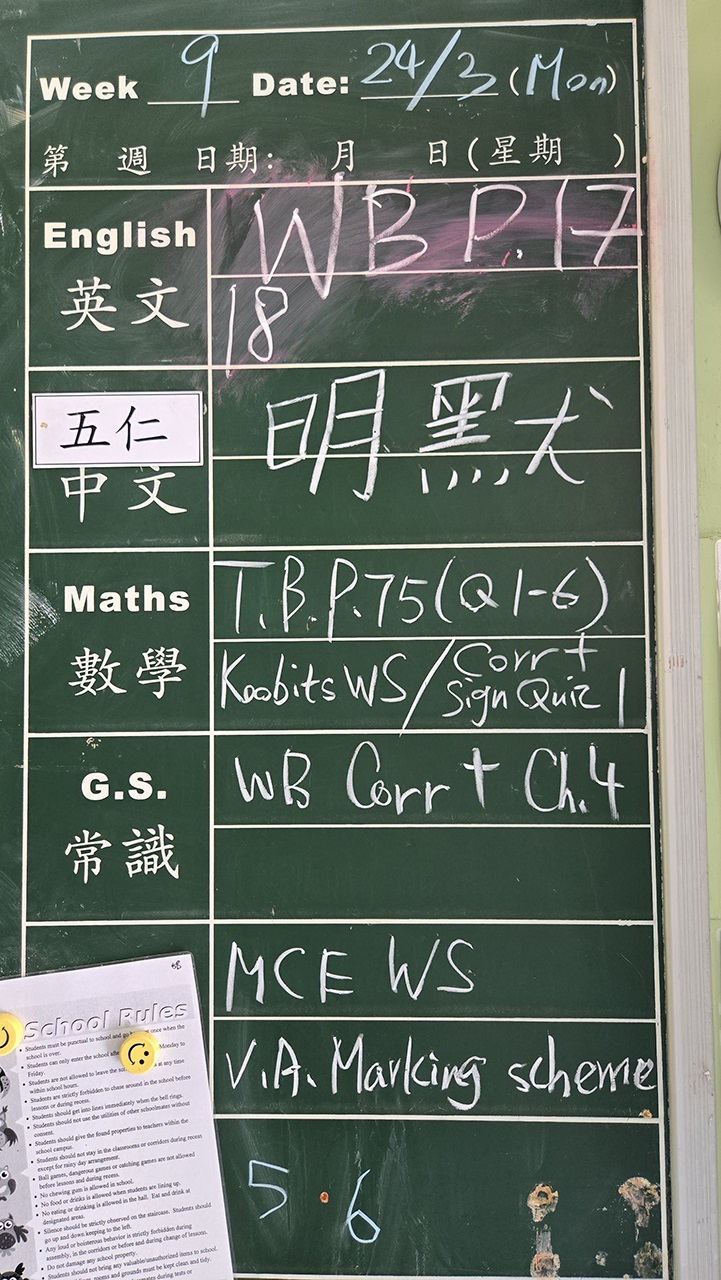 Week 9 Date: 24/3 (Mon)
第 週 日期: 月 日(星期 )
English
WB P.17
英文
18
五仁
明 默犬
中文
Maths
T.B.P.75(Q1-6)
數學
Koobits WS/Corr+
Sign Quiz 1
G.S.
WB Corr + Ch.4
常識
MCE WS
V.A. Marking scheme
5.6
School Rules
Students must be punctual to school and go once when the
school is over.
Students can only enter the school Monday to
Friday.
Students are not allowed to leave the at any time
within school hours.
Students are strictly forbidden to chase around in the school before
lessons or during recess.
Students should get into lines immediately when the bell rings.
Students should not use the utilities of other schoolmates without
consent.
Students should give the found properties to teachers within the
school campus.
Students should not stay in the classrooms or corridors during recess
except for rainy day arrangement.
Ball games, dangerous games or catching games are not allowed
before lessons and during recess.
No chewing gum is allowed in school.
No food or drinks is allowed when students are lining up.
No eating or drinking is allowed in the hall. Eat and drink at
designated areas.
Silence should be strictly observed on the staircase. Students should
go up and down keeping to the left.
Any loud or boisterous behavior is strictly forbidden during
assembly, in the corridors or before and during change of lessons.
Do not damage any school property.
Students should not bring any valuable/unauthorized items to school.
rooms and grounds must be kept clean and tidy.
during tests or